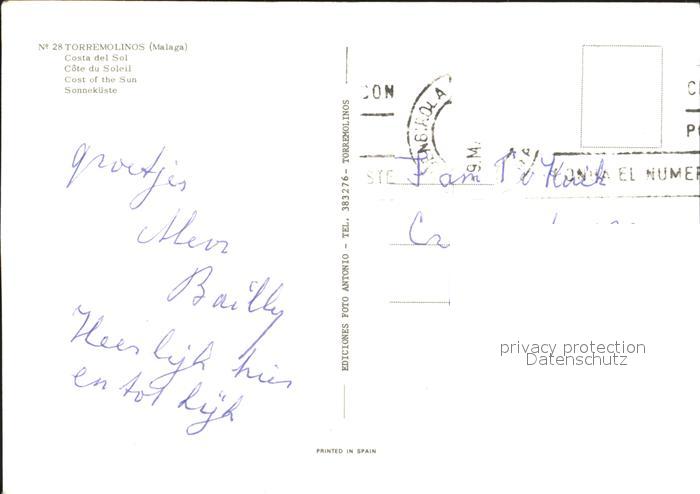 Nº 28 TORREMOLINOS (Malaga)
Costa del Sol
Côte du Soleil
Cost of the Sun
Sonneküste
groetjes
Mevr
Bailly
Heerlijk hier
en tot kijk
EDICIONES FOTO ANTONIO - TEL. 383276 - TORREMOLINOS
PRINTED IN SPAIN
CON
STE
FUENGIROLA
9.M.
PONGA EL NUMER
Fam
privacy protection
Datenschutz